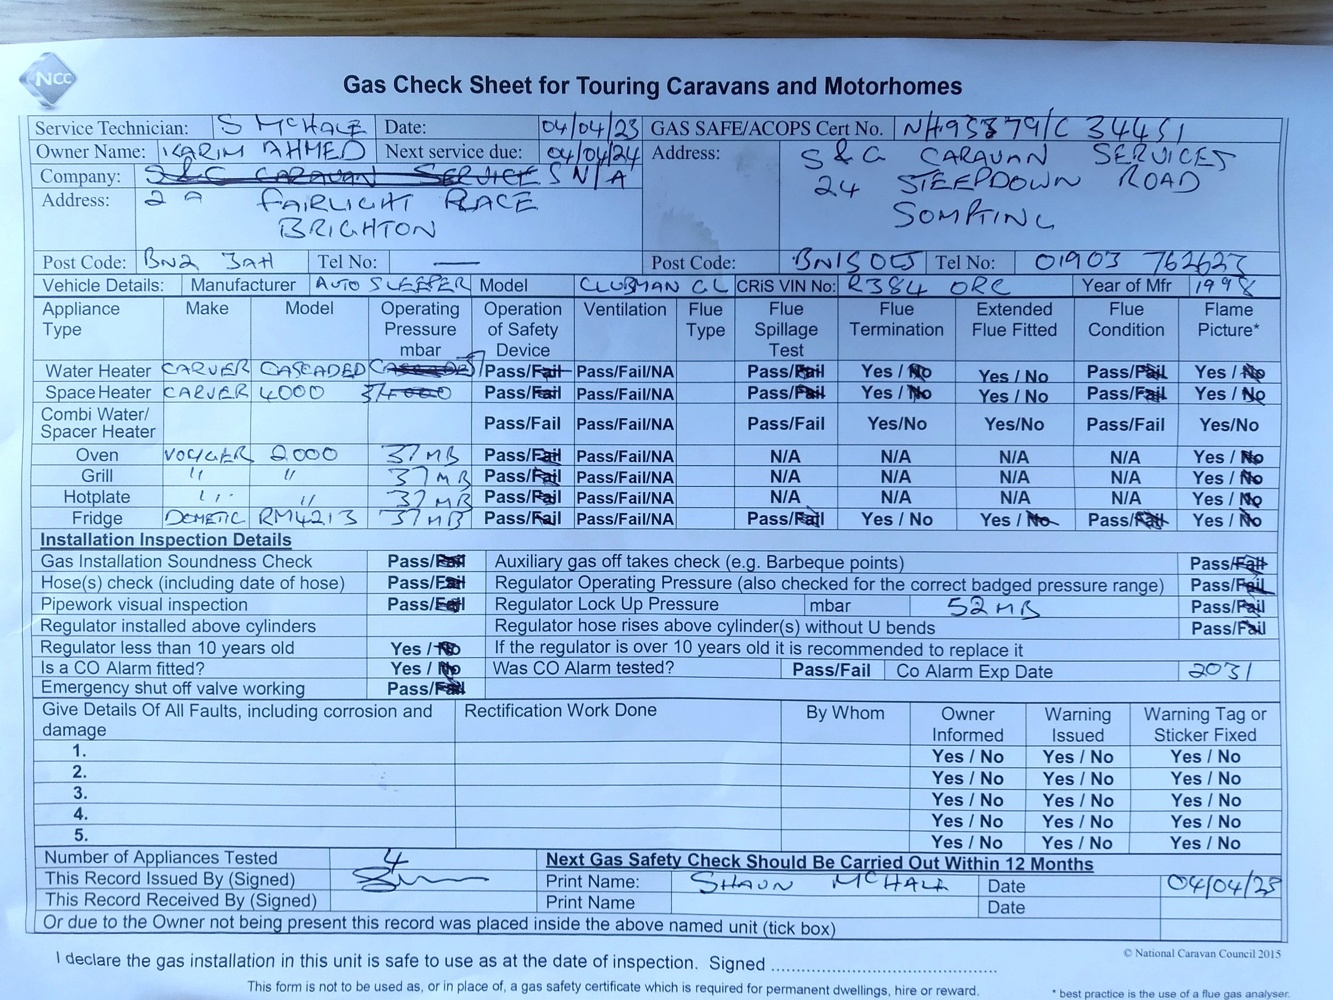 NCC
Gas Check Sheet for Touring Caravans and Motorhomes
Service Technician: S McHALE Date: 04/04/23 GAS SAFE/ACOPS Cert No. NH95379/C 34451
Owner Name: KARIM AHMED Next service due: 04/04/24 Address: S & G CARAVAN SERVICES
Company: S&G CARAVAN SERVICES N/A 24 STEEPDOWN ROAD
Address: 2 A FAIRLIGHT PLACE SOMPTING
BRIGHTON
Post Code: BN2 3AH Tel No: — Post Code: Tel No: 01903 762627
Vehicle Details: Manufacturer AUTO SLEEPER Model CLUBMAN GL CRiS VIN No: R384 ORC Year of Mfr 1998
Appliance Make Model Operating Operation Ventilation Flue Flue Flue Extended Flue Flame
Type Pressure of Safety Type Spillage Termination Flue Fitted Condition Picture*
mbar Device Test
Water Heater CARVER CASCADE Pass/Fail Pass/Fail/NA Pass/Fail Yes / No Yes / No Pass/Fail Yes / No
Space Heater CARVER 4000 Pass/Fail Pass/Fail/NA Pass/Fail Yes / No Yes / No Pass/Fail Yes / No
Combi Water/
Spacer Heater Pass/Fail Pass/Fail/NA Pass/Fail Yes/No Yes/No Pass/Fail Yes/No
Oven VOYGER 2000 37 MB Pass/Fail Pass/Fail/NA N/A N/A N/A N/A Yes / No
Grill " " 37 MB Pass/Fail Pass/Fail/NA N/A N/A N/A N/A Yes / No
Hotplate " " 37 MB Pass/Fail Pass/Fail/NA N/A N/A N/A N/A Yes / No
Fridge DOMETIC RM4213 37 MB Pass/Fail Pass/Fail/NA Pass/Fail Yes / No Yes / No Pass/Fail Yes / No
Installation Inspection Details
Gas Installation Soundness Check Pass/Fail Auxiliary gas off takes check (e.g. Barbeque points) Pass/Fail
Hose(s) check (including date of hose) Pass/Fail Regulator Operating Pressure (also checked for the correct badged pressure range) Pass/Fail
Pipework visual inspection Pass/Fail Regulator Lock Up Pressure mbar 52 MB Pass/Fail
Regulator installed above cylinders Regulator hose rises above cylinder(s) without U bends Pass/Fail
Regulator less than 10 years old Yes / No If the regulator is over 10 years old it is recommended to replace it
Is a CO Alarm fitted? Yes / No Was CO Alarm tested? Pass/Fail Co Alarm Exp Date 2031
Emergency shut off valve working Pass/Fail
Give Details Of All Faults, including corrosion and Rectification Work Done By Whom Owner Warning Warning Tag or
damage Informed Issued Sticker Fixed
1. Yes / No Yes / No Yes / No
2. Yes / No Yes / No Yes / No
3. Yes / No Yes / No Yes / No
4. Yes / No Yes / No Yes / No
5. Yes / No Yes / No Yes / No
Number of Appliances Tested 4 Next Gas Safety Check Should Be Carried Out Within 12 Months
This Record Issued By (Signed) Print Name: SHAUN McHALE Date 04/04/23
This Record Received By (Signed) Print Name Date
Or due to the Owner not being present this record was placed inside the above named unit (tick box)
© National Caravan Council 2015
I declare the gas installation in this unit is safe to use as at the date of inspection. Signed ........................................
This form is not to be used as, or in place of, a gas safety certificate which is required for permanent dwellings, hire or reward.
* best practice is the use of a flue gas analyser.